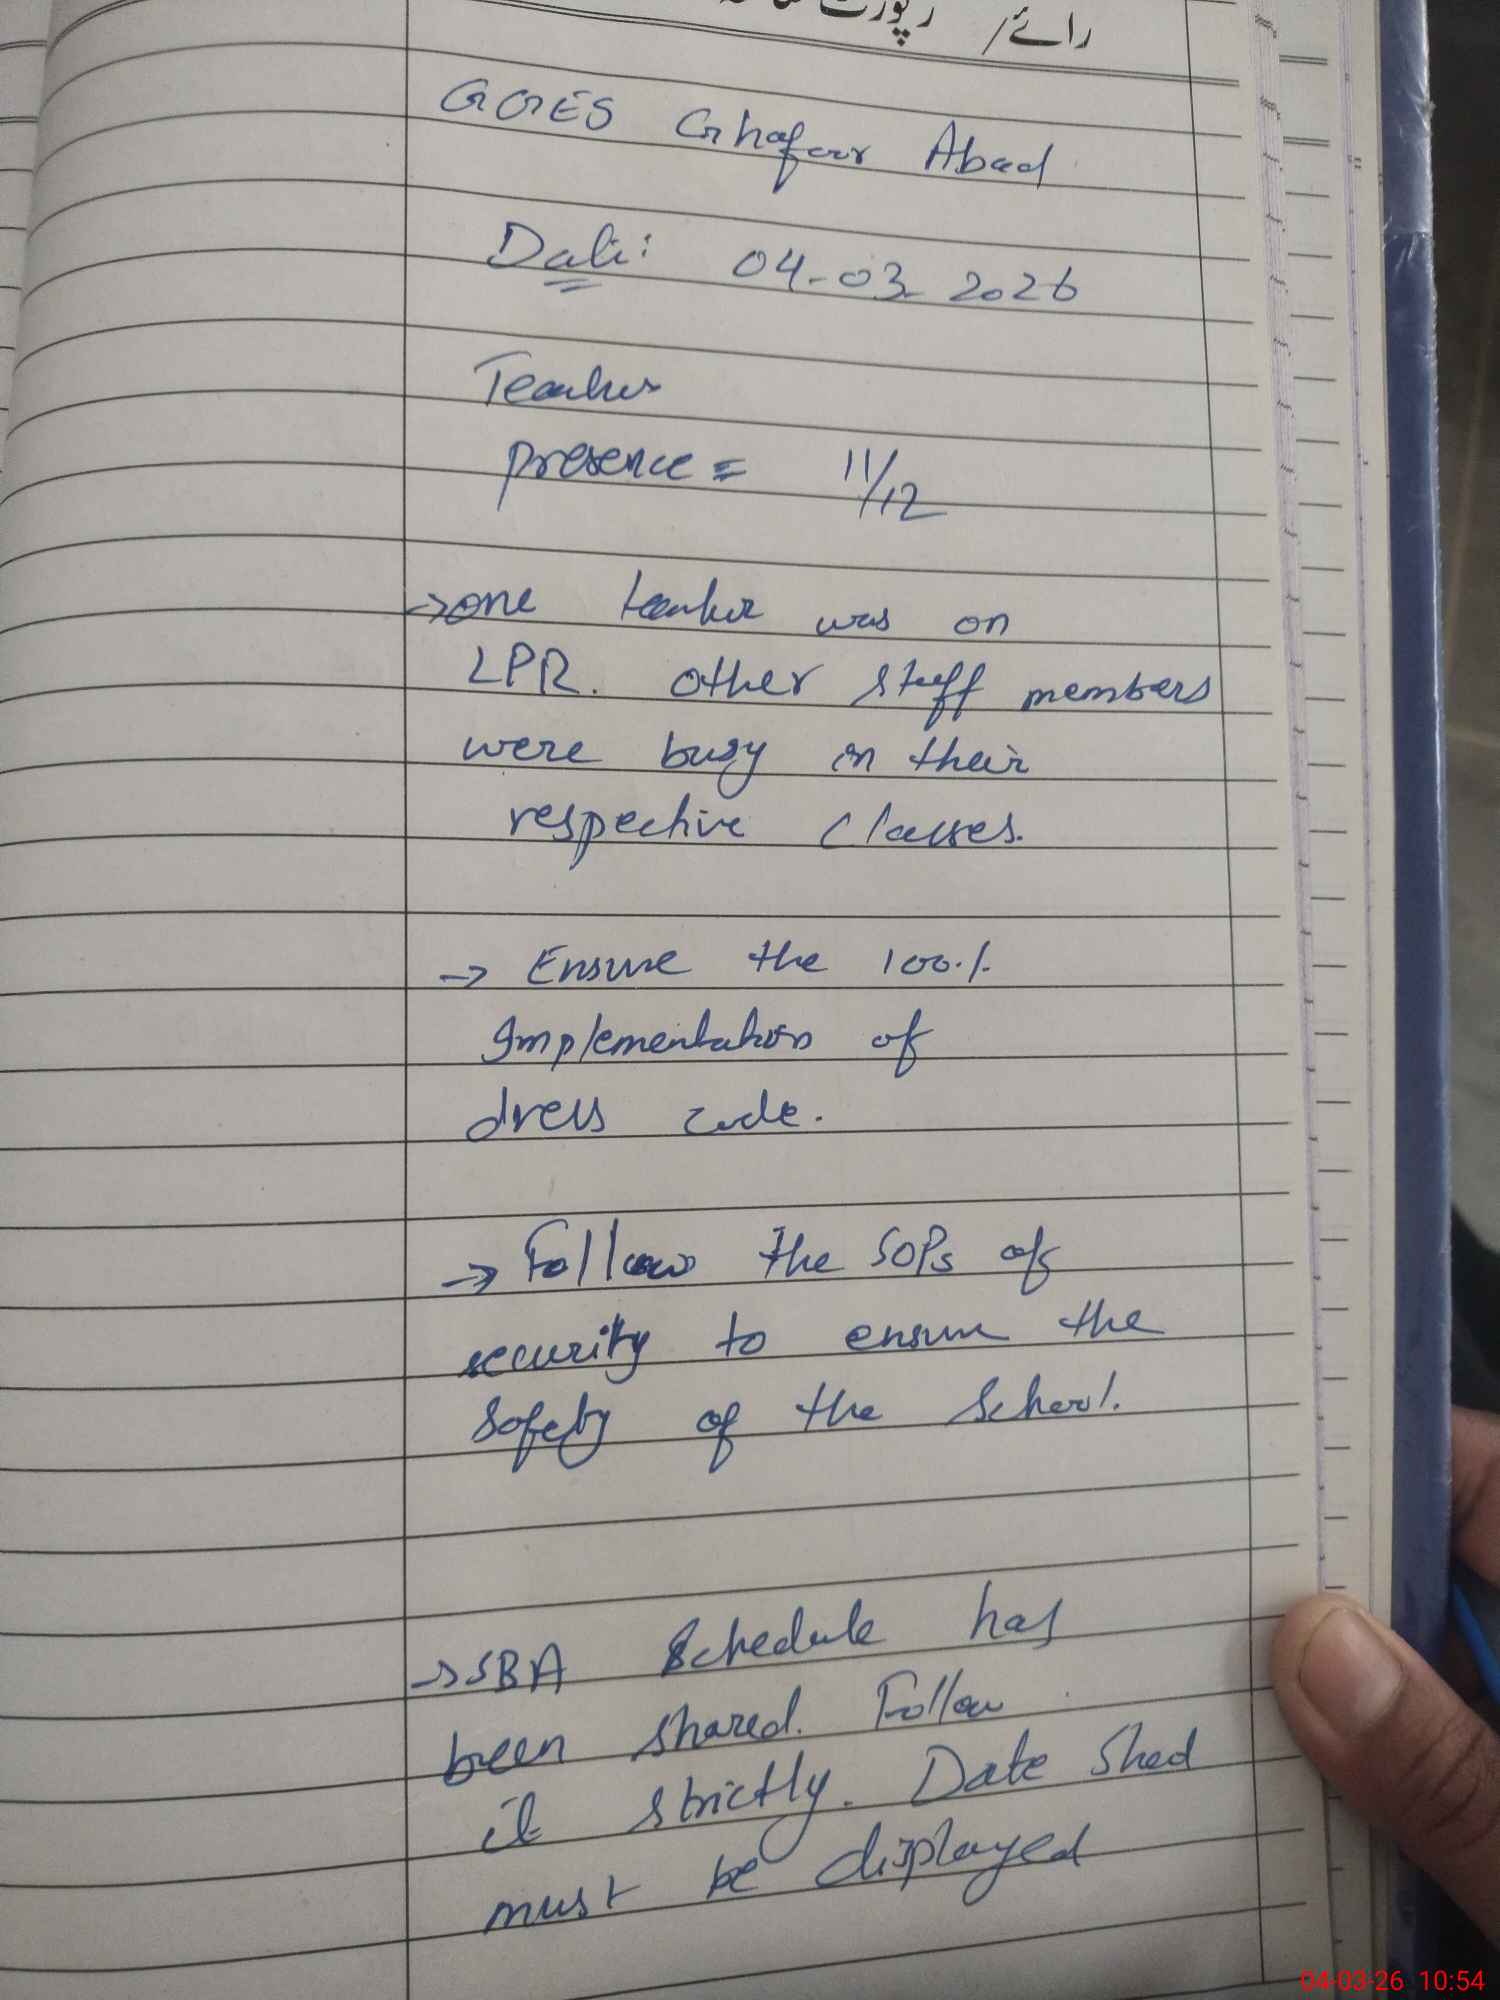 رائے/ رپورٹ
GGES Ghafoor Abad
Date: 04-03-2026
Teacher
presence = 11/12
→ one teacher was on
LPR. other staff members
were busy in their
respective classes.
→ Ensure the 100%
Implementation of
dress code.
→ Follow the SOPs of
security to ensure the
safety of the school.
→ SBA Schedule has
been shared. Follow
it strictly. Date Shed
must be displayed
04-03-26 10:54